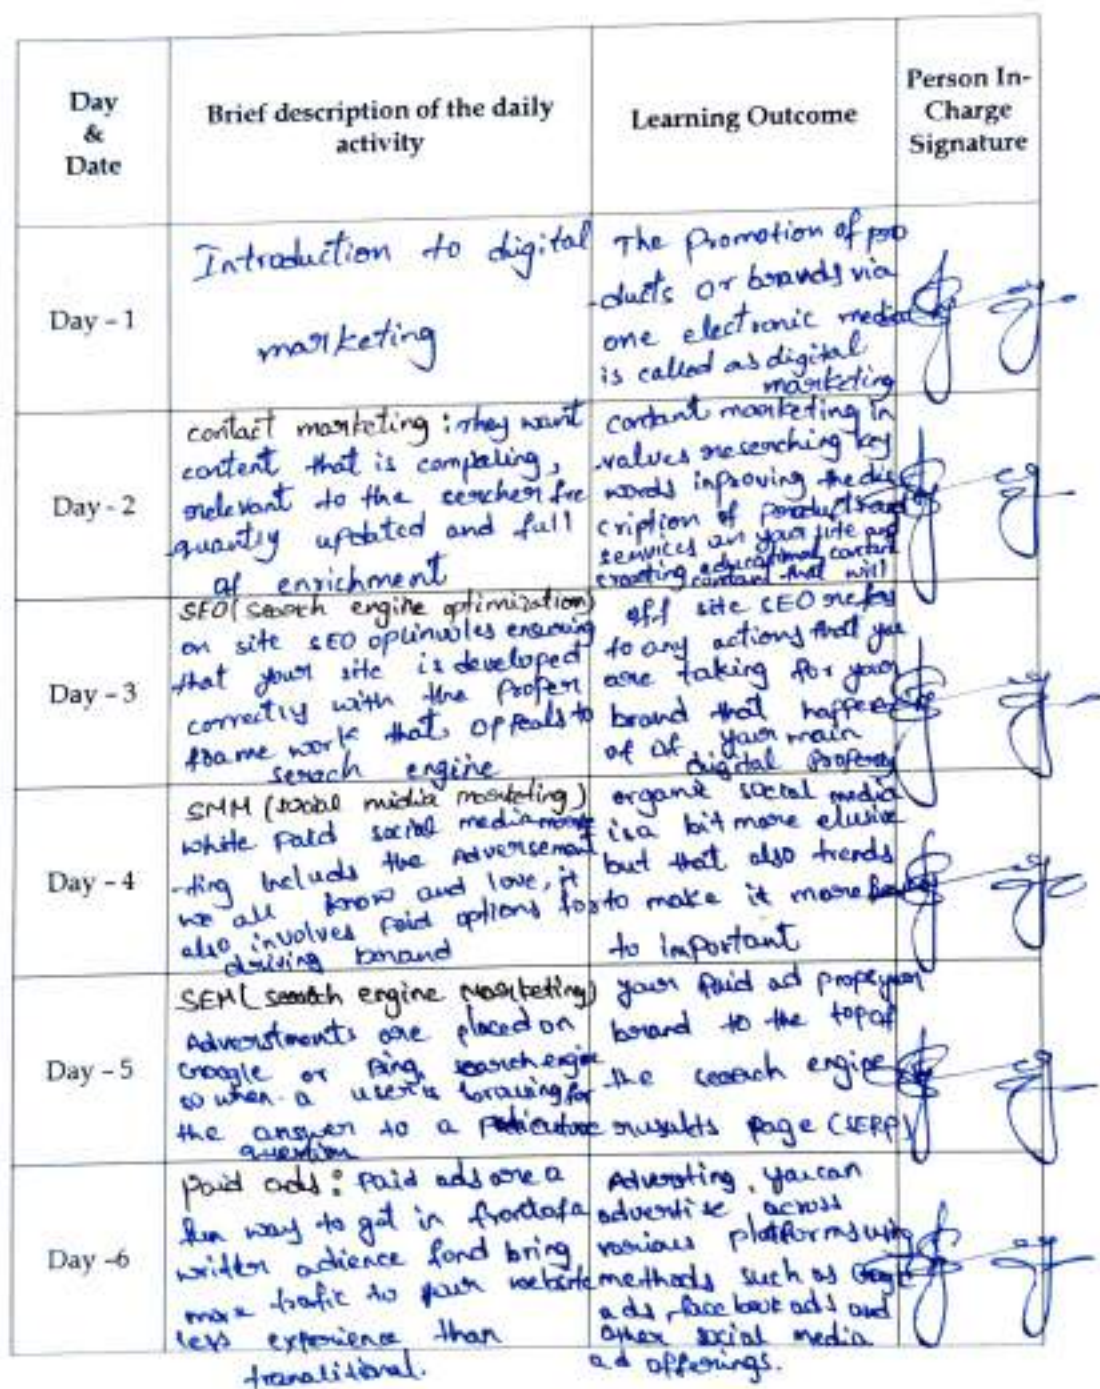 Day
&
Date
Brief description of the daily
activity
Learning Outcome
Person In-
Charge
Signature
Day - 1
Introduction to digital
marketing
The Promotion of pro
-ducts or brands via
one electronic media
is called as digital
marketing
Day - 2
contact marketing : They want
content that is compeling,
relevant to the sercher fre
-quantly updated and full
of enrichment
contant marketing in
-values reserching key
words inproving the dis
cription of products and
services on your site and
creating educational contant
contant that will
Day - 3
SEO (search engine optimization)
on site SEO ensuring
that your site is developed
correctly with the Profer
frame work that appeals to
serach engine
off site SEO refers
to any actions that you
are taking for your
brand that happens
of of your main
digital Property
Day - 4
SMM (social midia marketing)
while Paid social media marke
-ting Includs the Adversement
we all know and love, it
also involves Paid options for
driving brand
organic social media
is a bit more elusive
but that also trends
to make it more
to important
Day - 5
SEM (search engine marketing)
Adverstments are placed on
Google or Bing search engine
so when a user is browsing for
the answer to a
question
your Paid ad your
brand to the top of
the search engine
rusults page (SERP)
Day -6
Paid ads : Paid ads are a
fun way to get in front of a
adience bring
more trafic to your website
less experience than
Adversting, you can
advertise across
various platforms using
methods such as Google
ads, facebook ads and
other social media
ad offerings.